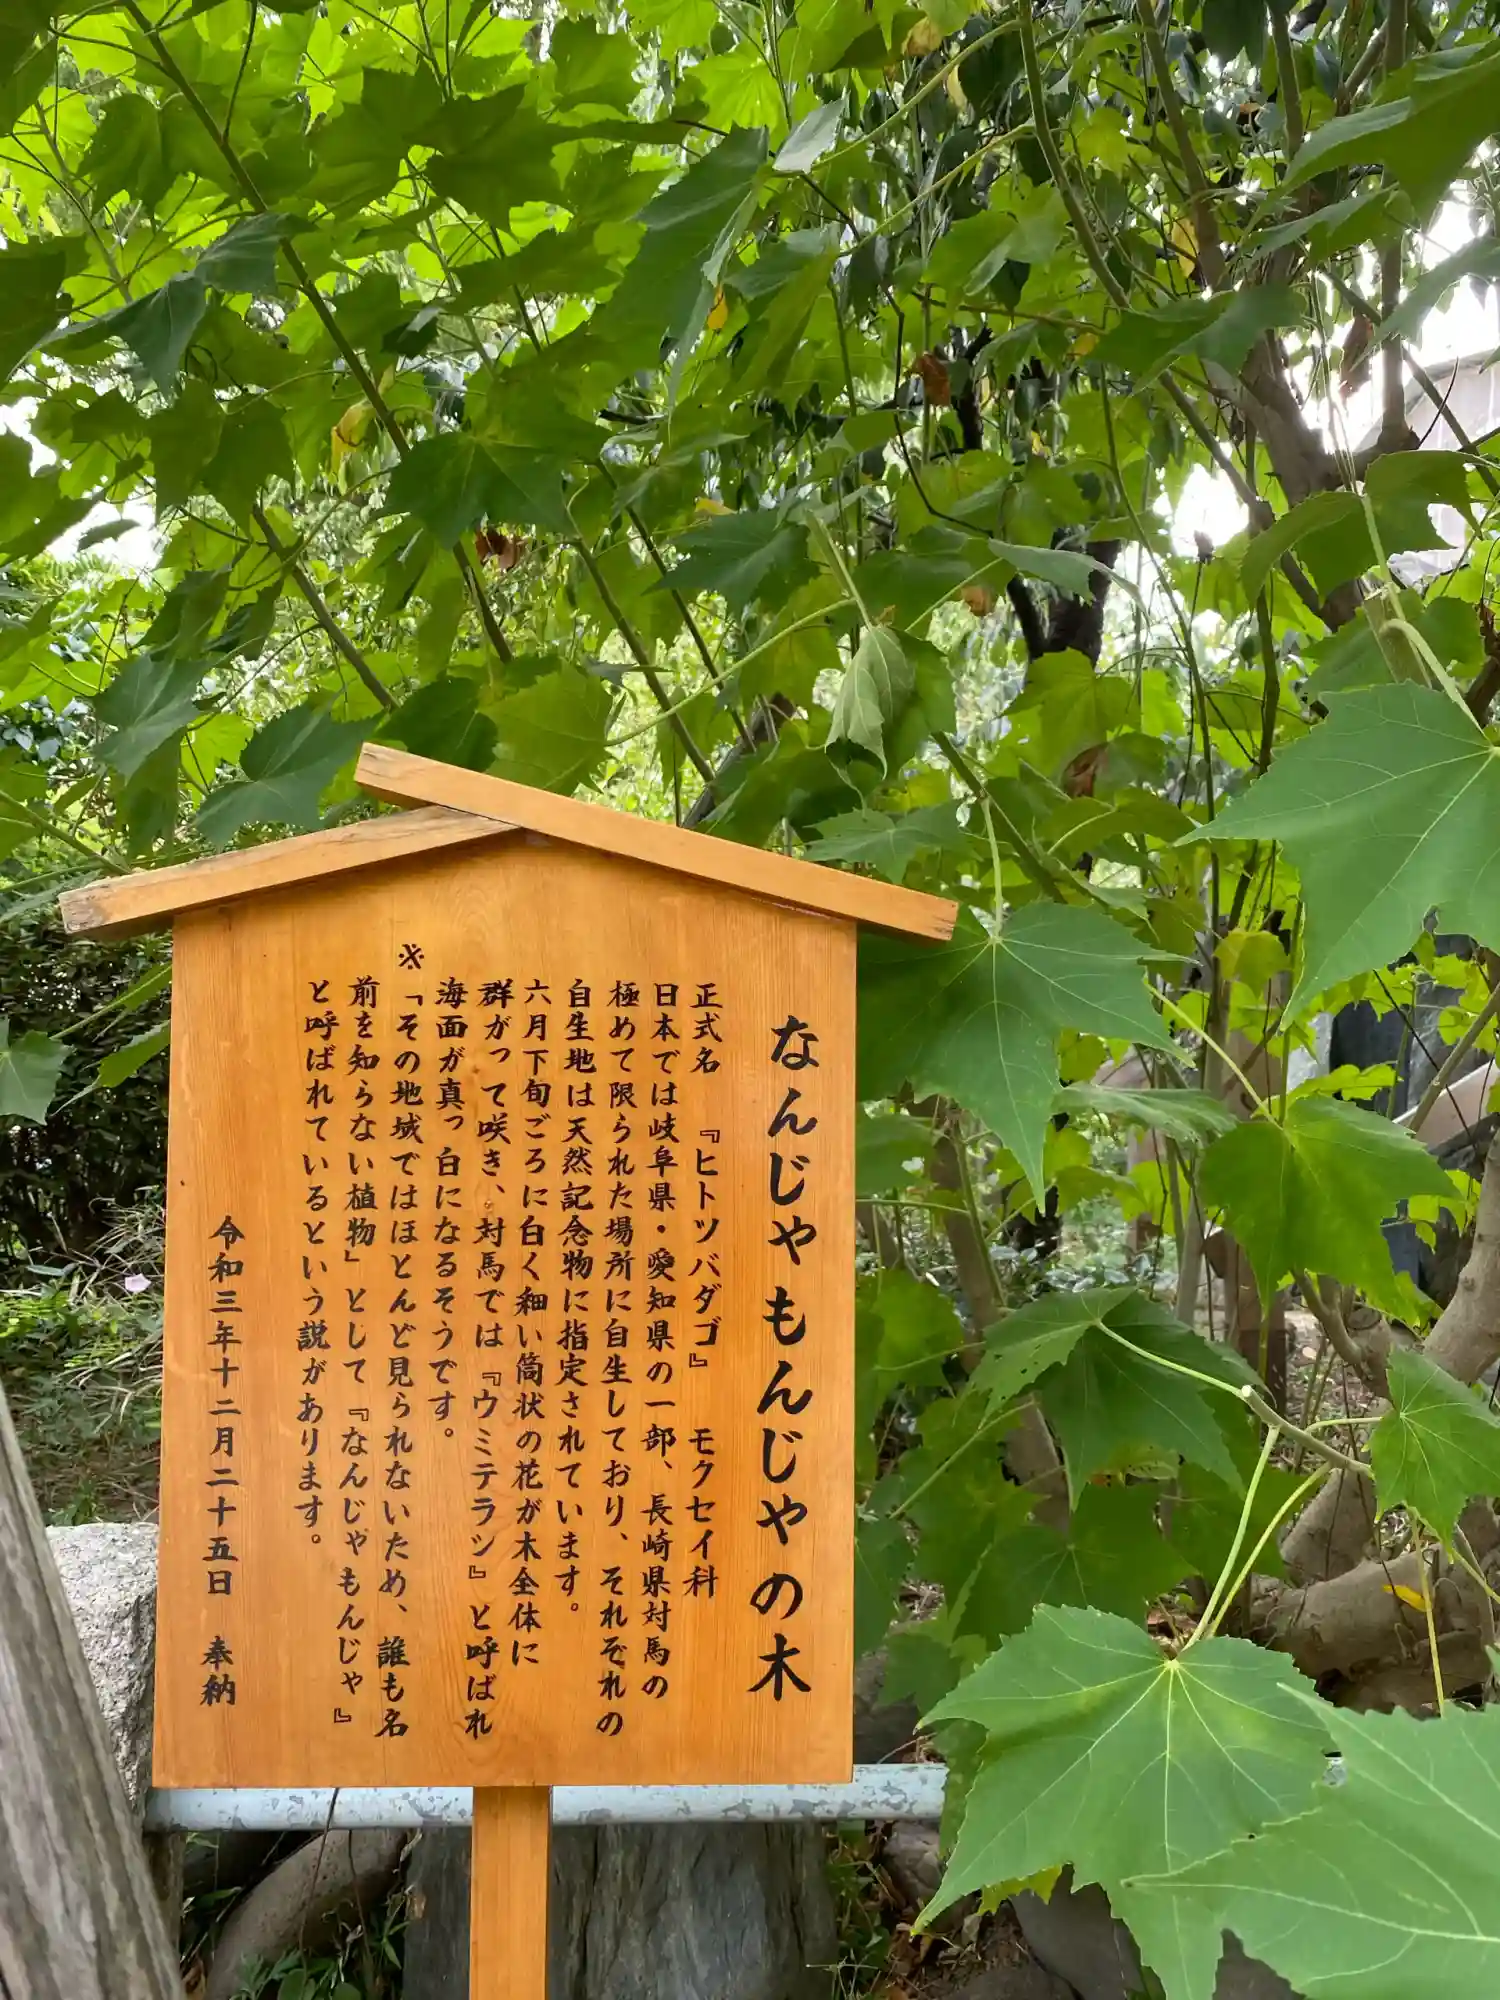 なんじゃもんじゃの木
正式名 『ヒトツバダゴ』 モクセイ科
日本では岐阜県・愛知県の一部、長崎県対馬の
極めて限られた場所に自生しており、それぞれの
自生地は天然記念物に指定されています。
六月下旬ごろに白く細い筒状の花が木全体に
群がって咲き、対馬では『ウミテラシ』と呼ばれ
海面が真っ白になるそうです。
※「その地域ではほとんど見られないため、誰も名
前を知らない植物」として『なんじゃもんじゃ』
と呼ばれているという説があります。
令和三年十二月二十五日 奉納